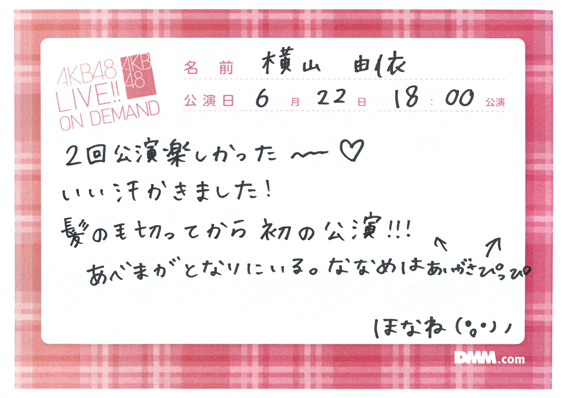 AKB48
LIVE!!
ON DEMAND
AKB
48
名前 横山 由依
公演日 6月22日 18:00公演
2回公演楽しかった〜♡
いい汗かきました!
髪の毛切ってから初の公演!!!
↖ ↗
あべまがとなりにいる。ななめはあいがさぴっぴ
ほなね(°o°)ノ
DMM.com